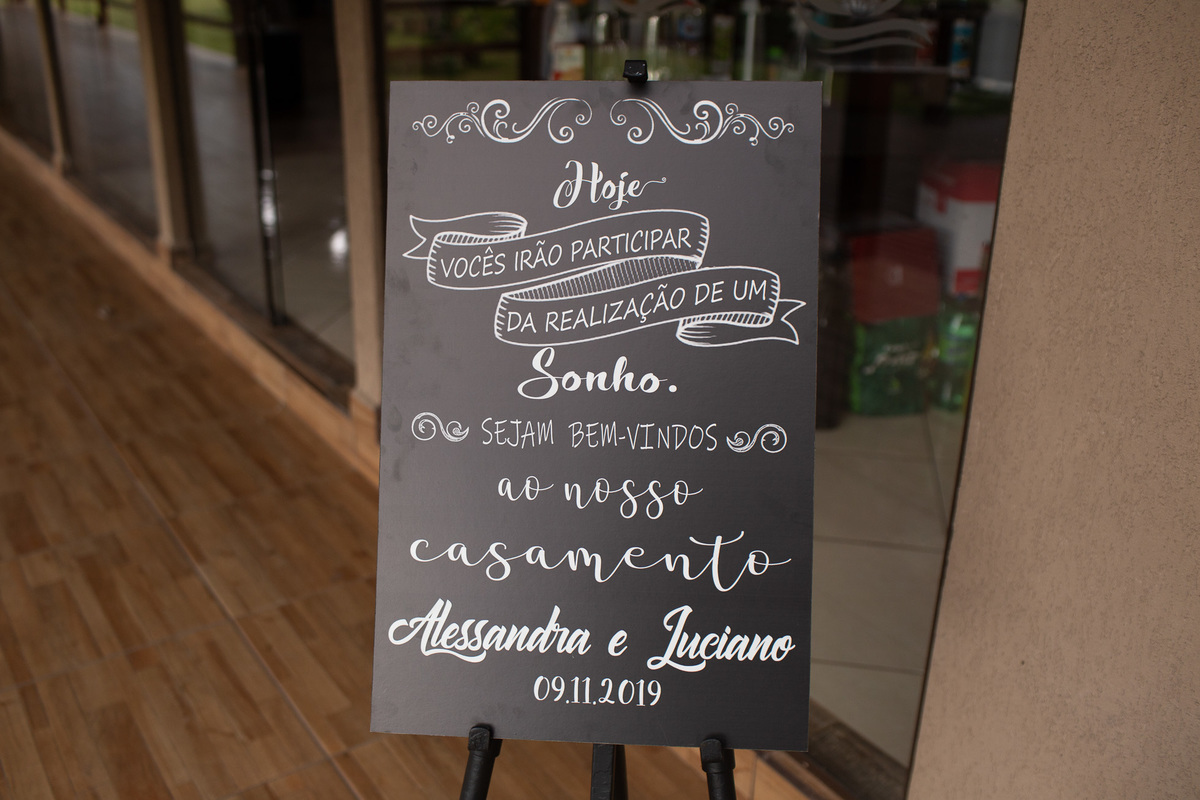 Hoje
VOCÊS IRÃO PARTICIPAR
DA REALIZAÇÃO DE UM
Sonho.
SEJAM BEM-VINDOS
ao nosso
casamento
Alessandra e Luciano
09.11.2019